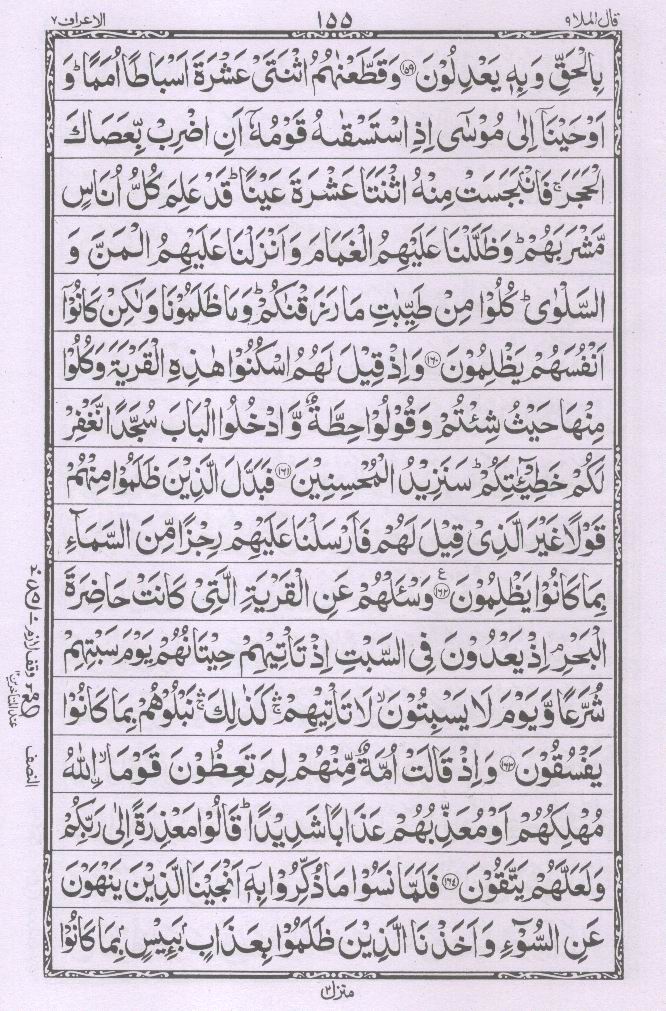 قال الملا ٩
١٥٥
الاعراف ٧
بِالْحَقِّ وَبِهٖ يَعْدِلُوْنَ ﴿۱۵۹﴾ وَقَطَّعْنٰهُمُ اثْنَتَیْ عَشْرَةَ اَسْبَاطًا اُمَمًا ؕ وَ
اَوْحَیْنَاۤ اِلٰی مُوْسٰۤی اِذِ اسْتَسْقٰىهُ قَوْمُهٗۤ اَنِ اضْرِبْ بِّعَصَاكَ
الْحَجَرَ ۚ فَانْۢبَجَسَتْ مِنْهُ اثْنَتَا عَشْرَةَ عَیْنًا ؕ قَدْ عَلِمَ كُلُّ اُنَاسٍ
مَّشْرَبَهُمْ ؕ وَظَلَّلْنَا عَلَیْهِمُ الْغَمَامَ وَاَنْزَلْنَا عَلَیْهِمُ الْمَنَّ وَ
السَّلْوٰی ؕ كُلُوْا مِنْ طَیِّبٰتِ مَا رَزَقْنٰكُمْ ؕ وَمَا ظَلَمُوْنَا وَلٰكِنْ كَانُوْۤا
اَنْفُسَهُمْ یَظْلِمُوْنَ ﴿۱۶۰﴾ وَاِذْ قِیْلَ لَهُمُ اسْكُنُوْا هٰذِهِ الْقَرْیَةَ وَكُلُوْا
مِنْهَا حَیْثُ شِئْتُمْ وَقُوْلُوْا حِطَّةٌ وَّادْخُلُوا الْبَابَ سُجَّدًا نَّغْفِرْ
لَكُمْ خَطِیْٓـٰٔتِكُمْ ؕ سَنَزِیْدُ الْمُحْسِنِیْنَ ﴿۱۶۱﴾ فَبَدَّلَ الَّذِیْنَ ظَلَمُوْا مِنْهُمْ
قَوْلًا غَیْرَ الَّذِیْ قِیْلَ لَهُمْ فَاَرْسَلْنَا عَلَیْهِمْ رِجْزًا مِّنَ السَّمَآءِ
بِمَا كَانُوْا یَظْلِمُوْنَ ﴿۱۶۲﴾ ع وَسْـَٔلْهُمْ عَنِ الْقَرْیَةِ الَّتِیْ كَانَتْ حَاضِرَةَ
الْبَحْرِ ۘ اِذْ یَعْدُوْنَ فِی السَّبْتِ اِذْ تَاْتِیْهِمْ حِیْتَانُهُمْ یَوْمَ سَبْتِهِمْ
شُرَّعًا وَّیَوْمَ لَا یَسْبِتُوْنَ ۙ لَا تَاْتِیْهِمْ ۛۚ كَذٰلِكَ ۛۚ نَبْلُوْهُمْ بِمَا كَانُوْا
یَفْسُقُوْنَ ﴿۱۶۳﴾ وَاِذْ قَالَتْ اُمَّةٌ مِّنْهُمْ لِمَ تَعِظُوْنَ قَوْمَا ۙ اللّٰهُ
مُهْلِكُهُمْ اَوْ مُعَذِّبُهُمْ عَذَابًا شَدِیْدًا ؕ قَالُوْا مَعْذِرَةً اِلٰی رَبِّكُمْ
وَلَعَلَّهُمْ یَتَّقُوْنَ ﴿۱۶۴﴾ فَلَمَّا نَسُوْا مَا ذُكِّرُوْا بِهٖۤ اَنْجَیْنَا الَّذِیْنَ یَنْهَوْنَ
عَنِ السُّوْٓءِ وَاَخَذْنَا الَّذِیْنَ ظَلَمُوْا بِعَذَابٍۭ بَئِیْسٍۭ بِمَا كَانُوْا
وقف لازم
النصف
منزل ٢